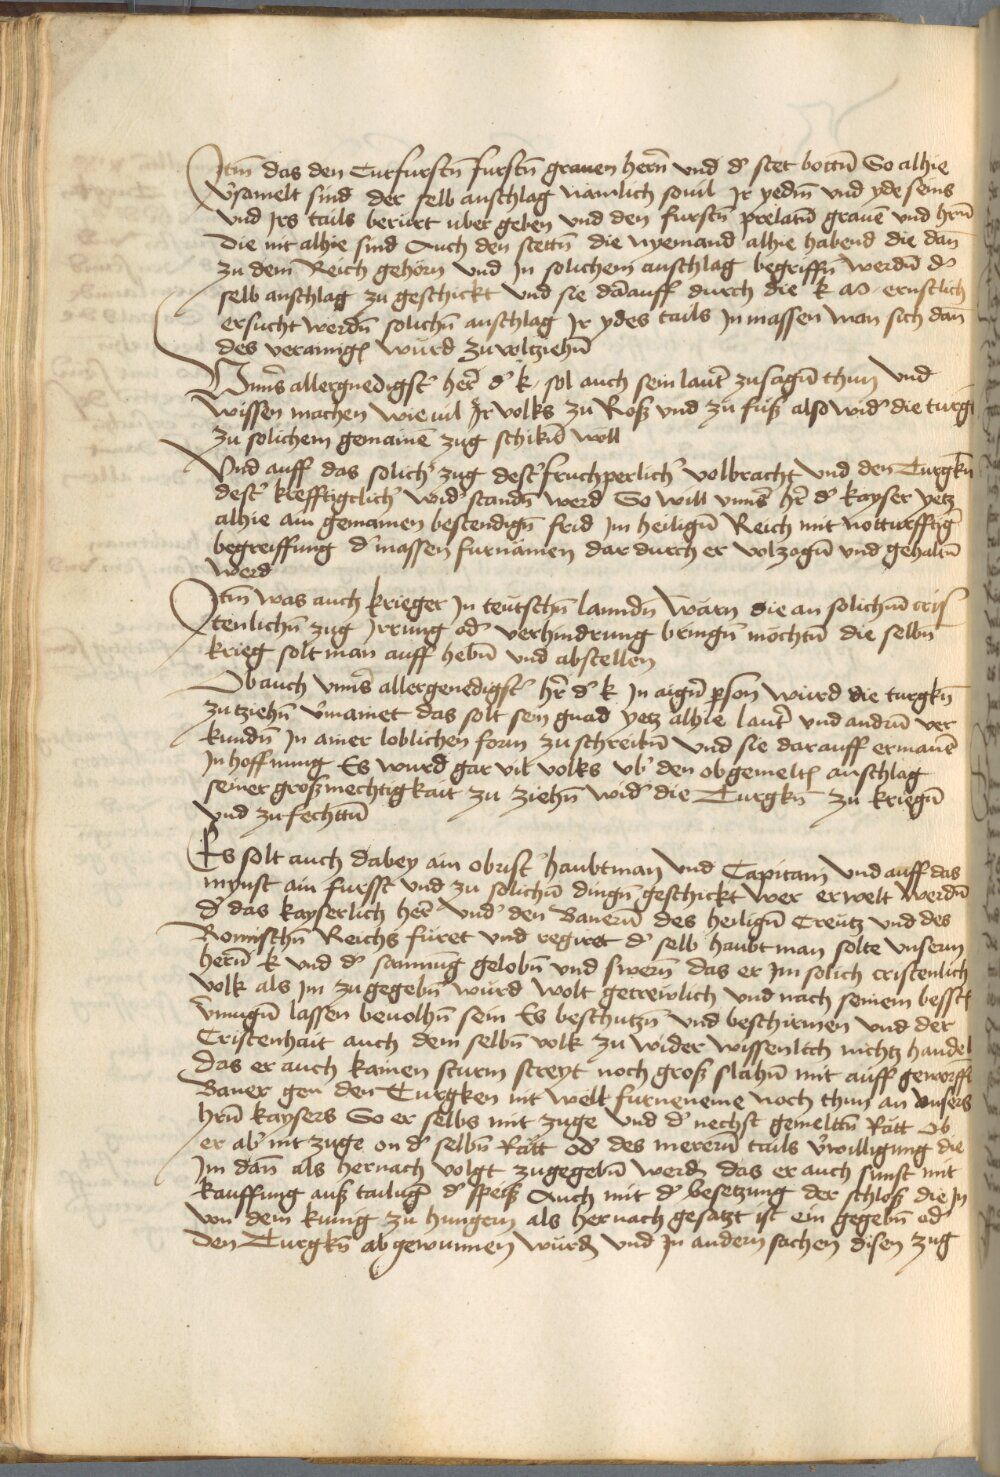 Itm̄ das den Curfurstn̄ fursten̄ grauen hern̄ vnd d' stet bottn̄ So alhie
v'samelt sind der selb anschlag namlich souil Ir yedm̄ vnd yde seins
vnd Irs tails berürt uber geben vnd den furstn̄ prelatn̄ grauē vnd hrn̄
die nit alhie sind Auch den stettn̄ die nyemand alhie habend die dan̄
zu dem Reich gehörn vnd In solichem anschlag begriffn̄ werdn̄ d'
selb anschlag zu geschickt vnd sie dārauff durch die k m ernstlich
ersucht werdn̄ solichn̄ anschlag Ir ydes tails In massen man sich dan
des verainigt würd zu volziehn̄
Vnns' allergnedigst' her' d' k sol auch sein laut' zusagn̄ thun vnd
wissen machen wie uil Ir volks zu Roß vnd zu füß also wid' die turg
zu solichem gemainē zug schikn̄ wöll
Vnd auff das solich' zug dest' fruchperlich' volbracht vnd den Turgkn̄
dest' krefftigclich' wid'standn̄ werd So will vnns' hr' d' kayser yetz
alhie ain gemainen bestendign̄ frid Im heilign̄ Reich mit notturfftig'
begreiffung d'massen furnämen dar durch er volzogn̄ vnd gehaltn̄
werd
Itm̄ was auch krieger In teutschn̄ lanndn̄ wärn die an solichm̄ cris
tenlichn̄ zug Irrung od' verhindrung bringn̄ möchtn̄ die selbn̄
krieg solt man auff hebn̄ vnd abstellen
Ob auch vnns' allergenedigst' hr' d' k In aign̄ pson würd die turgkn̄
zu tziehn̄ v'mainet das solt sein gnad yetz alhie laut' vnd andn̄ ver
kundn̄ In ainer loblichen form zu schreibn̄ vnd sie darauff ermanē
In hoffnung Es wurd gar vil volks vb' den obgemelt anschlag
seiner großmechtigkait zu ziehn̄ wid' die Turgkn̄ zu kriegn̄
vnd zu fechttn̄
Es solt auch dabey ain obrist' haubtman vnd Capitani vnd auff das
mynst ain furst vnd zu solichn̄ dingn̄ geschickt wer erwelt werdn̄
d' das kayserlich her' vnd' den Banern̄ des heilign̄ Creutz vnd des
Romischn̄ Reichs füret vnd regiret d' selb haubtman solte vnserm
hern̄ k vnd d' samnūg gelobn̄ vnd swern̄ das er Im solich cristenlich
volk als Im zu gegebn̄ würd wolt getrewlich vnd nach seinem besst
v'mugn̄ lassen beuolhn̄ sein Es beschutzn̄ vnd beschirmen vnd der
Cristenhait auch dem selbn̄ volk zu wider wissenlich nichtz handel
das er auch kainen sturm streyt noch groß slahn̄ mit auff geworff
Baner gen den Turgken nit welt furneneme noch thun an vnsers
hrn̄ kaysers So er selbs mit zuge vnd d' nechst gemeltn̄ Rätt ob
er ab' nit zuge on d' selbn̄ Rätt od' des merern̄ tails v'willigung die
Im dan̄ als hernach volgt zugegebn̄ werd das er auch sunst mit
kauffung auß tailug' d' speiß Auch mit d' besetzung der schloß die In
von dem kunig zu hungern als hernach gesatzt ist ein gegebn̄ od'
den Turgkn̄ ab gewunnen würd vnd In andern sachen disen zug